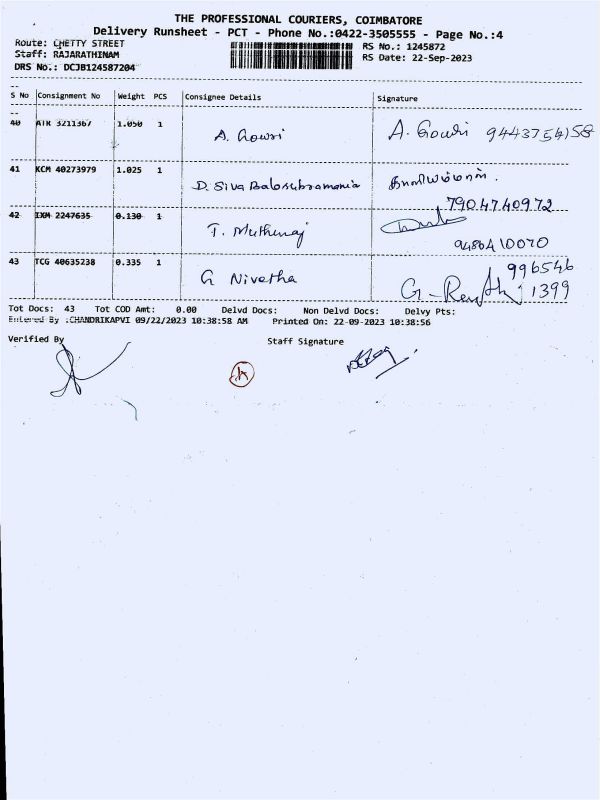 THE PROFESSIONAL COURIERS, COIMBATORE
Delivery Runsheet - PCT - Phone No.:0422-3505555 - Page No.:4
Route: CHETTY STREET RS No.: 1245872
Staff: RAJARATHINAM RS Date: 22-Sep-2023
DRS No.: DCJB124587204
S No Consignment No Weight PCS Consignee Details Signature
40 ATR 3211367 1.050 1 A. Gowri A. Gowri 9443754158
41 KCM 40273979 1.025 1 D. Siva Balasubramania
7904740972
42 IXM 2247635 0.130 1 T. Muthuraj
9486410070
43 TCG 40635238 0.335 1 G Nivetha 996546
1399
Tot Docs: 43 Tot COD Amt: 0.00 Delvd Docs: Non Delvd Docs: Delvy Pts:
Entered By :CHANDRIKAPVI 09/22/2023 10:38:58 AM Printed On: 22-09-2023 10:38:56
Verified By Staff Signature